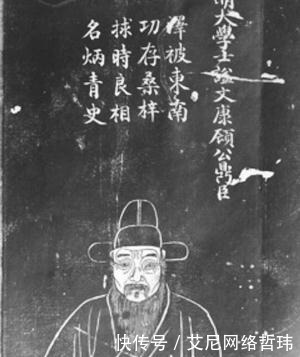 明大學士謚文康顧公鼎臣
澤被東南
功存桑梓
捄時良相
名炳青史
快传号 / 艾尼网络哲玮